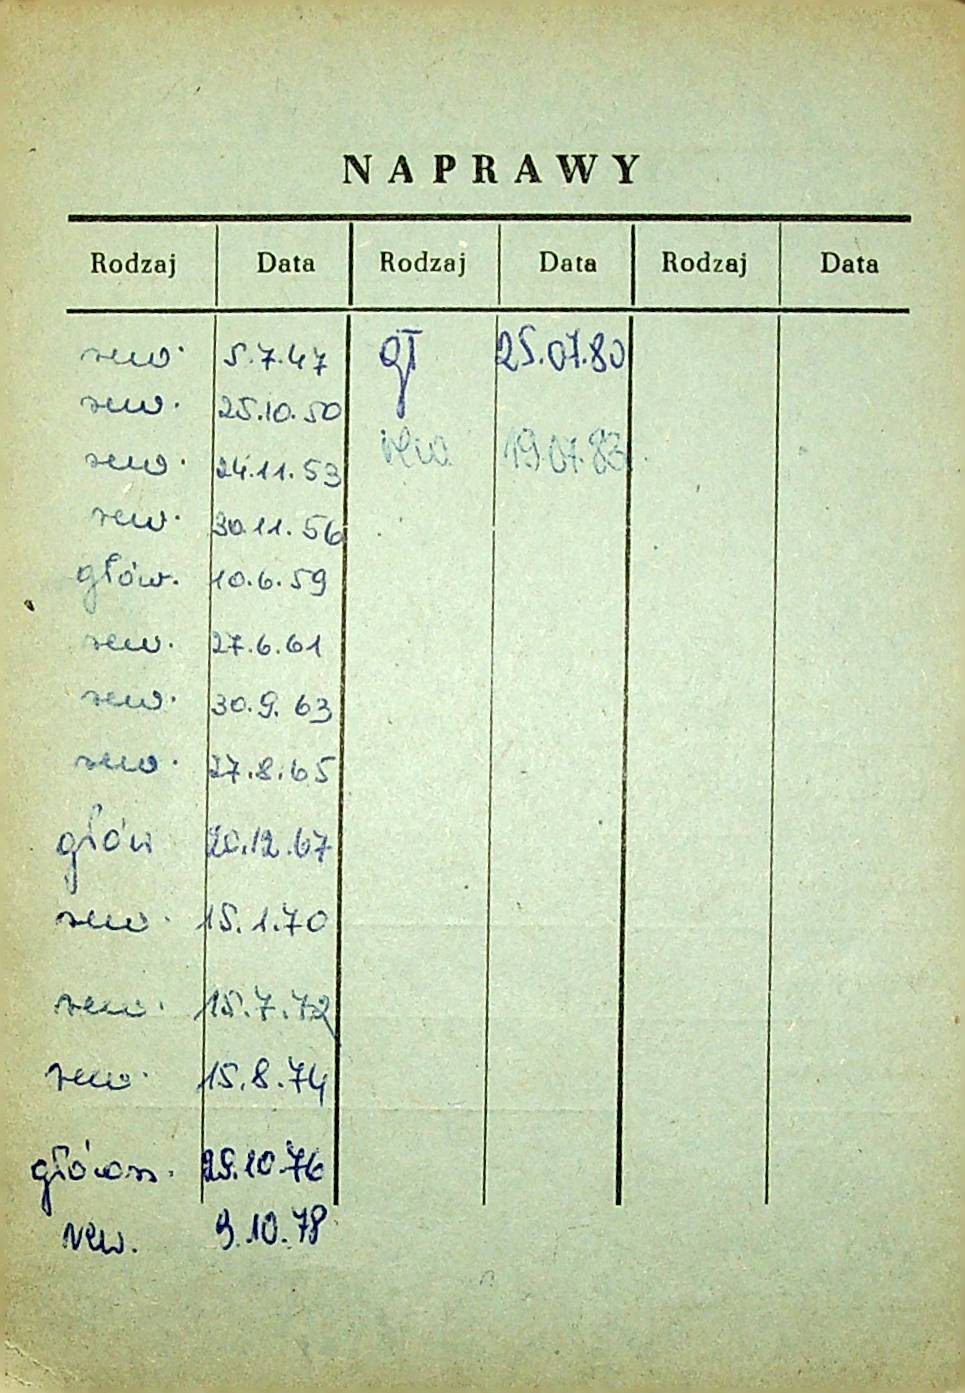 NAPRAWY
Rodzaj Data Rodzaj Data Rodzaj Data
rew. 5.7.47 gł 25.07.80
rew. 25.10.50
rew 19.07.83
rew. 24.11.53
rew. 30.11.56
głów. 10.6.59
rew. 27.6.61
rew. 30.9.63
rew. 27.8.65
głów 20.12.67
rew. 15.1.70
rew. 15.7.72
rew. 15.8.74
10.76
rew. 9.10.78